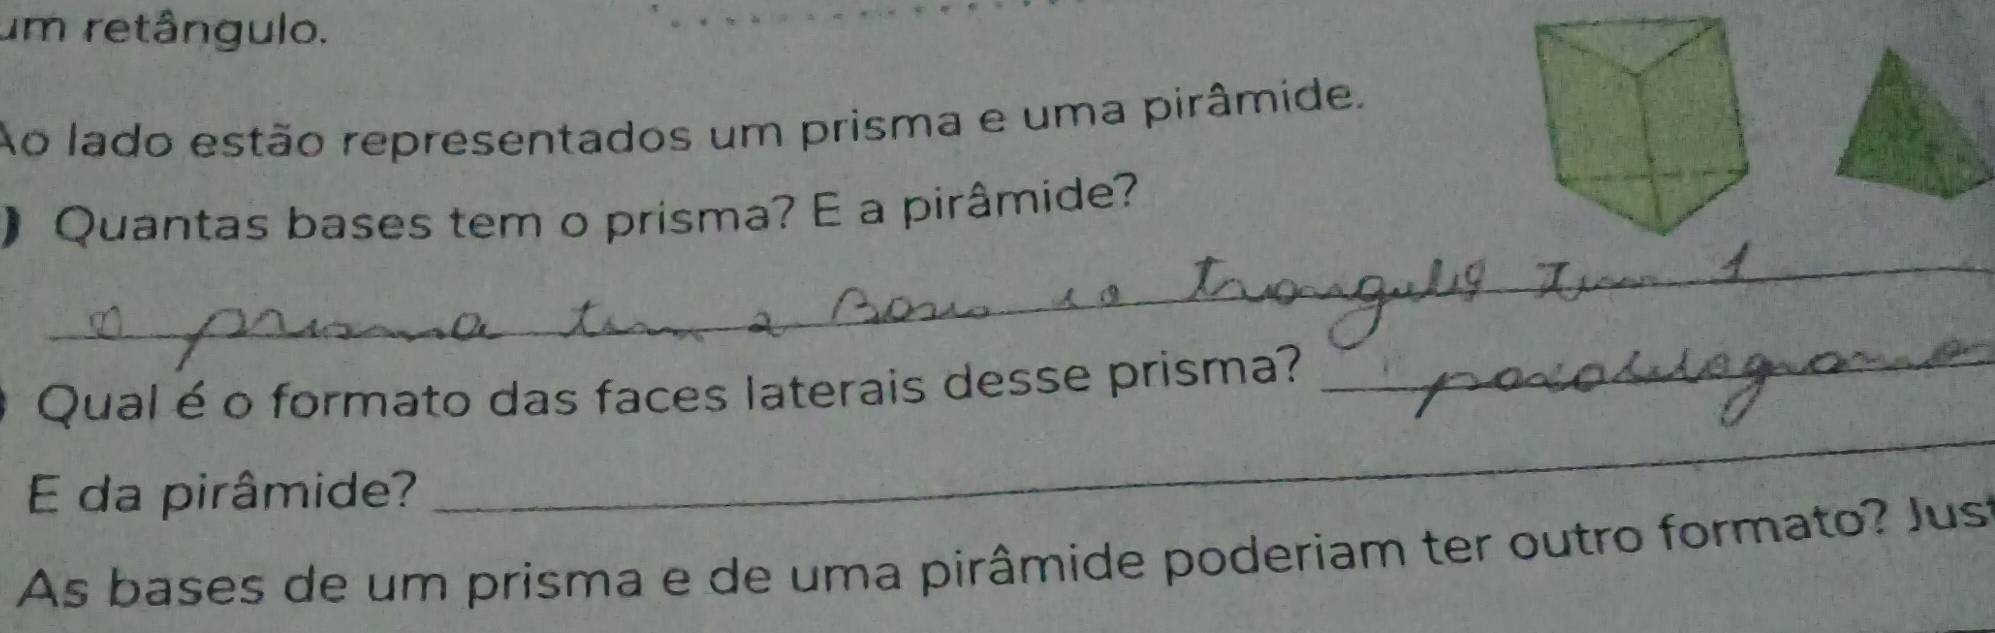 um retângulo.
Ao lado estão representados um prisma e uma pirâmide.
) Quantas bases tem o prisma? E a pirâmide?
O prisma tem 2 Bases e o triangulo tem 1
) Qual é o formato das faces laterais desse prisma? paralelogramo
E da pirâmide?
As bases de um prisma e de uma pirâmide poderiam ter outro formato? Just